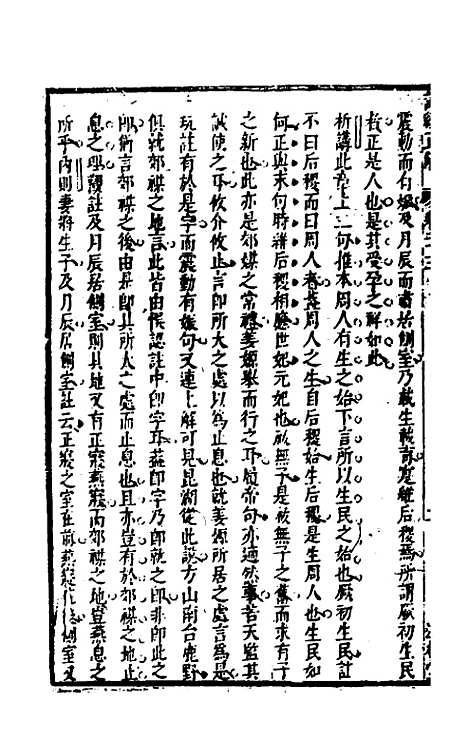 震動而有娠及月辰而肅居側室乃載生載育寔維后稷焉所謂厥初生民
者正是人也是其受孕之祥如此
析講此章上二句推本周人有生之始下言所以生民之始也厥初生民註
不曰后稷而曰周人者蓋周人之生自后稷始生后稷是生周人也生民如
何正與末句時維后稷相應世妃元妃也祓無子是祓無子之 而求有子
之新也此亦是郊媒之常禮姜嫄舉而行之耳履帝句亦適然事若天監其
誠使之耳攸介攸止言即所大之處以為止息也就姜嫄所居之處言為是
玩註有於是字而震動有娠句又連上解可見昆湖從此說方山南台鹿野
俱就郊禖之地言此皆由悞認註中即字耳蓋即字乃即就之即非即此之
即猶言郊禖之後由是即其所大之處而止息也且亦豈有於郊禖之地止
息之理觀註及月辰居側室則其地又有正寢燕寢而郊禖之地豈燕息之
所乎內則妻將生子及月辰居側室註云正寢之室在前燕寢在 側室又